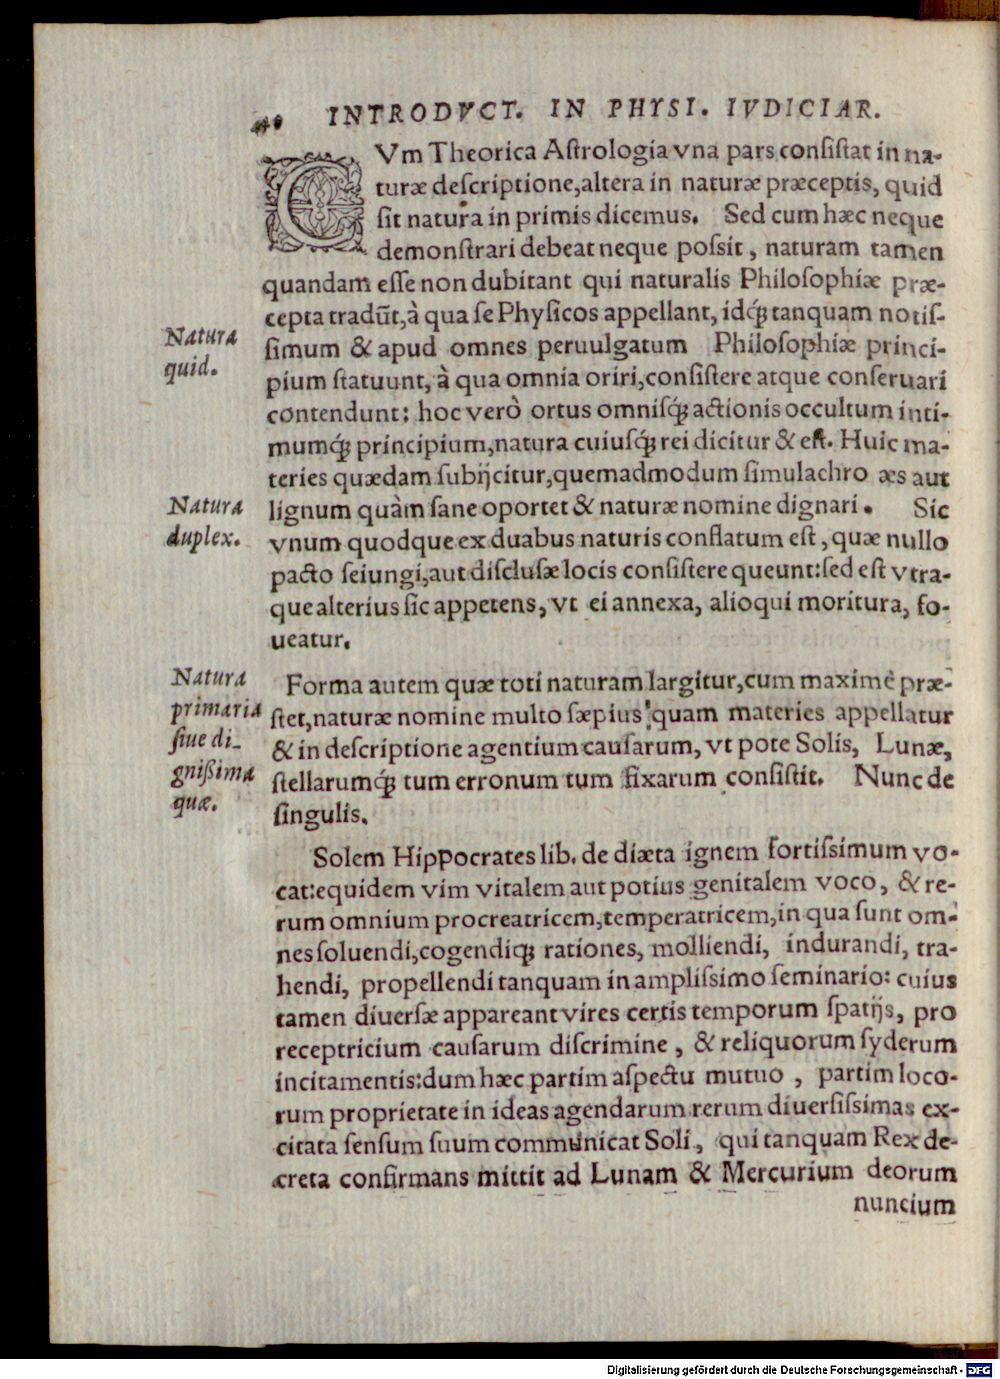 INTRODVCT. IN PHYSI. IVDICIAR.
CVm Theorica Aſtrologia vna pars conſiſtat in na-
turæ deſcriptione,altera in naturæ præceptis, quid
ſit natura in primis dicemus. Sed cum hæc neque
demonſtrari debeat neque poſſit, naturam tamen
quandam eſſe non dubitant qui naturalis Philoſophiæ præ-
cepta tradūt,à qua ſe Phyſicos appellant, idq́; tanquam notiſ-
ſimum & apud omnes peruulgatum Philoſophiæ princi-
pium ſtatuunt, à qua omnia oriri,conſiſtere atque conſeruari
contendunt: hoc verò ortus omniſq́; actionis occultum inti-
mumq́; principium,natura cuiuſq́; rei dicitur & eſt. Huic ma-
teries quædam ſubijcitur,quemadmodum ſimulachro æs aut
lignum quàm ſane oportet & naturæ nomine dignari. Sic
vnum quodque ex duabus naturis conflatum eſt, quæ nullo
pacto ſeiungi,aut diſcluſæ locis conſiſtere queunt:ſed eſt vtra-
que alterius ſic appetens, vt ei annexa, alioqui moritura, fo-
ueatur.
Natura
quid.
Natura
duplex.
Forma autem quæ toti naturam largitur,cum maximè præ-
ſtet,naturæ nomine multo ſæpius quam materies appellatur
& in deſcriptione agentium cauſarum, vt pote Solis, Lunæ,
ſtellarumq́; tum erronum tum fixarum conſiſtit. Nunc de
ſingulis.
Natura
primaria
ſiue di-
gniſsima
quæ.
Solem Hippocrates lib. de diæta ignem fortiſſimum vo-
cat:equidem vim vitalem aut potius genitalem voco, & re-
rum omnium procreatricem,temperatricem,in qua ſunt om-
nes ſoluendi,cogendiq́; rationes, molliendi, indurandi, tra-
hendi, propellendi tanquam in ampliſſimo ſeminario: cuius
tamen diuerſæ appareant vires certis temporum ſpatijs, pro
receptricium cauſarum diſcrimine, & reliquorum ſyderum
incitamentis:dum hæc partim aſpectu mutuo, partim loco-
rum proprietate in ideas agendarum rerum diuerſiſſimas ex-
citata ſenſum ſuum communicat Soli, qui tanquam Rex de-
creta confirmans mittit ad Lunam & Mercurium deorum
nuncium
Digitalisierung gefördert durch die Deutsche Forschungsgemeinschaft - DFG